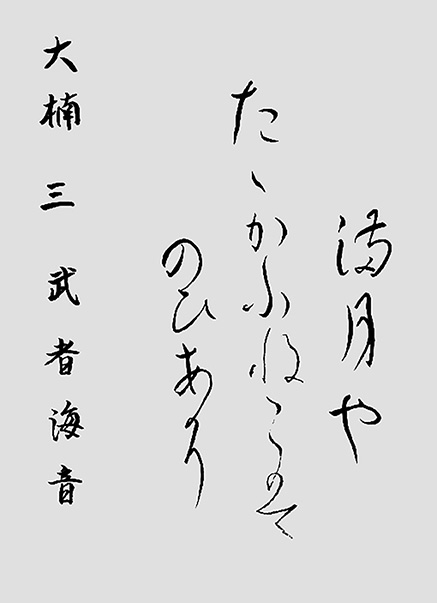 満月や
たゝかふねこは
のひあかり
大楠 三 武者海音